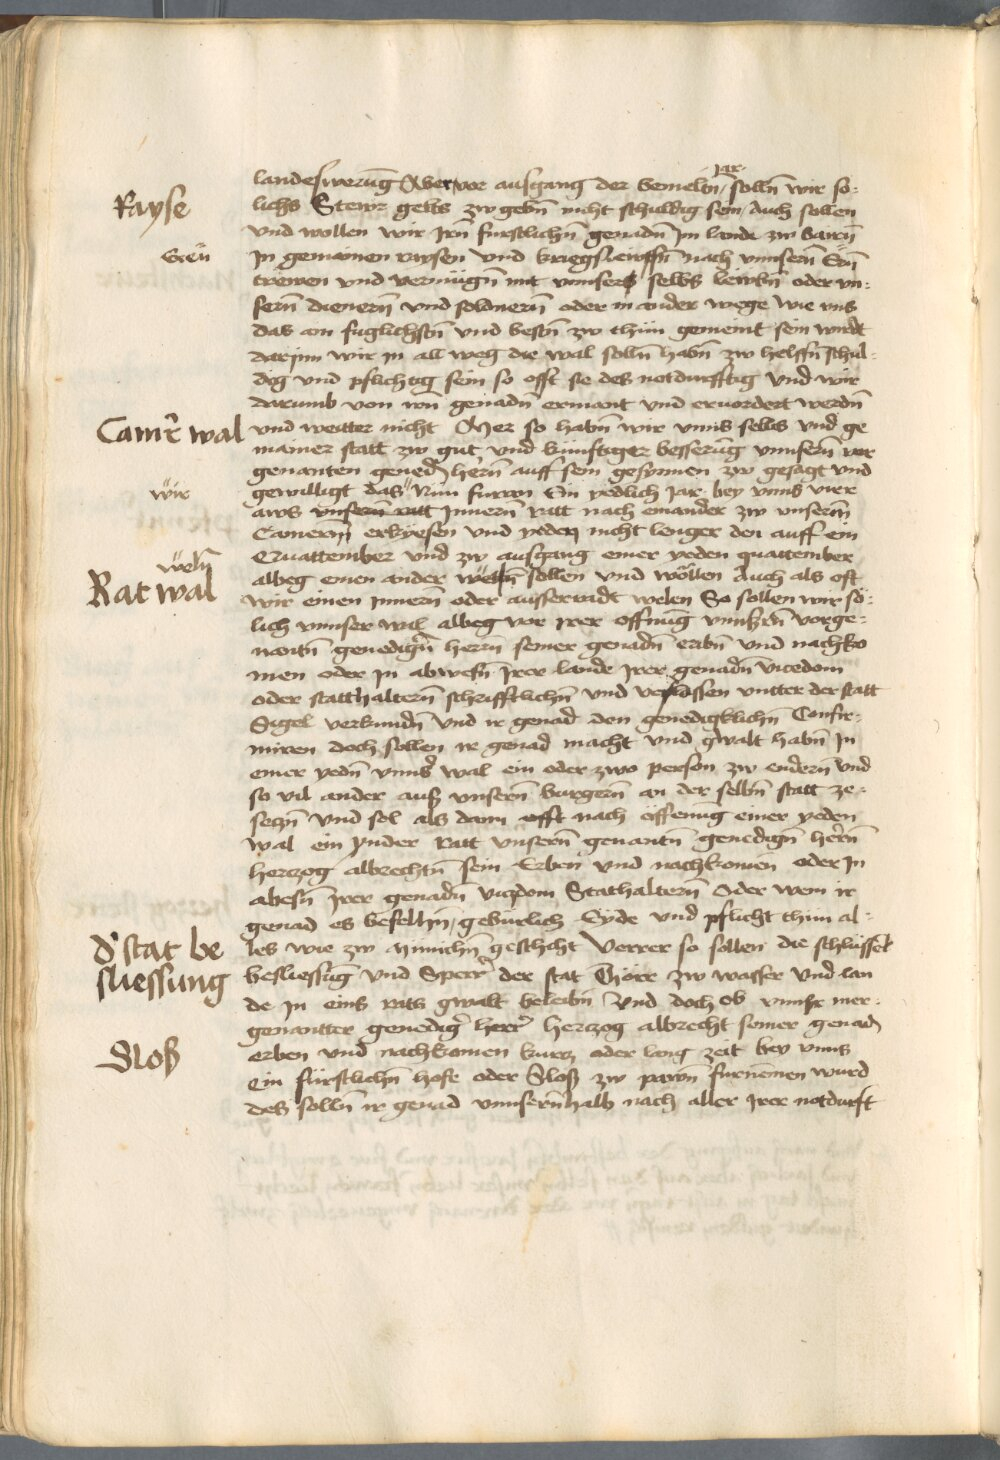 Jar
landeswerung Aber vor ausgang der bemeltn / solln̄ wir so-
Rayse
lichs Stewr gelts zw gebn̄ nicht schuldig sein / Auch sollen
vnd wollen wir Irn̄ furstlichn̄ genadn̄ Im lande zw bairn̄
In gemainen raysen vnd kriegsleuffn̄ nach vnnsern̄
trewen vnd vermügn̄ mit vnnsers selbs leibn̄ oder vn-
sern̄ dienern̄ vnd soldnern̄ oder in ander wege wie vns
das am fuglichstn̄ vnd bestn̄ zw thun gemeint sein wirdt
darjnn wir in all weg die wal solln̄ habn̄ zw helffn̄ schul-
dig vnd pflichtig sein so offt sie des notdurfftig vnd wir
darumb von irn̄ genadn̄ ermant vnd eruordert werdn̄
Camr̄ wal
vnd weitter nicht Mer so habn̄ wir vnns selbs vnd ge
mainer statt zw gut vnd künftiger besserūg vnnsern̄ vor
genanten genedn̄ hern̄ auff sein gesynnen zw gesagt vnd
wir
gewilligt das Nun furron Ein yedlich Jar bey vnns vier
aws vnserm ratt Innern̄ Ratt nach einander zw vnsern̄
Camerern̄ erkyesen vnd yeden nicht lenger den auff ein
Quattember vnd zw ausgang einer yeden quattember
weln̄
albeg einen ander weln̄ sollen vnd wöllen Auch als oft
Rat wal
wir einen Innern̄ oder ausserradt welen So sollen wir so-
lich vnnser wal albeg vor irer offnūg vnnsern̄ vorge-
nantn̄ genedign̄ herrn̄ seiner genadn̄ erbn̄ vnd nachko
men oder in abwesn̄ Irer lande Irer genadn̄ vicedom
oder statthaltern̄ schrifftlichn̄ vnd verslossen vntter der statt
Sigel verkundn̄ vnd ir genad den genedigklichn̄ Confir-
miren doch sollen ir genad macht vnd gwalt habn̄ In
einer yedn̄ vnns' wal ein oder zwo person zw endern̄ vnd
so vil ander auß vnsern̄ burgern̄ an der selbn̄ statt ze-
setzn̄ vnd sol als dann offt nach öffenūg einer yeden
wal ein ynder Ratt vnsern̄ genantn̄ genedign̄ hern̄
hertzog albrechtn̄ sein Erben vnd nachkomen oder In
abesn̄ Irer genadn̄ vitzdom Stathaltern̄ Oder wem ir
genad es befelhn̄ / gebürlich Eyde vnd pflicht thun al-
les wie zw Munichn̄ geschicht Verrer so sollen die schlüssel
d' stat be
sliessung
besliessūg vnd Sperr' der stat Thorr zw wasser vnd lan
de In eins rats gwalt beleibn̄ Vnd doch ob vnnser mer-
genantter genedig' herr' hertzog albrecht seiner genadn̄
Sloß
erben vnd nachkomen kurtz oder lang zeit bey vnns
Ein fürstlichn̄ hofe oder Sloß zw pawn̄ furnemen wurd
des solln̄ ir genad vnnsern̄halb nach aller Irer notdurft